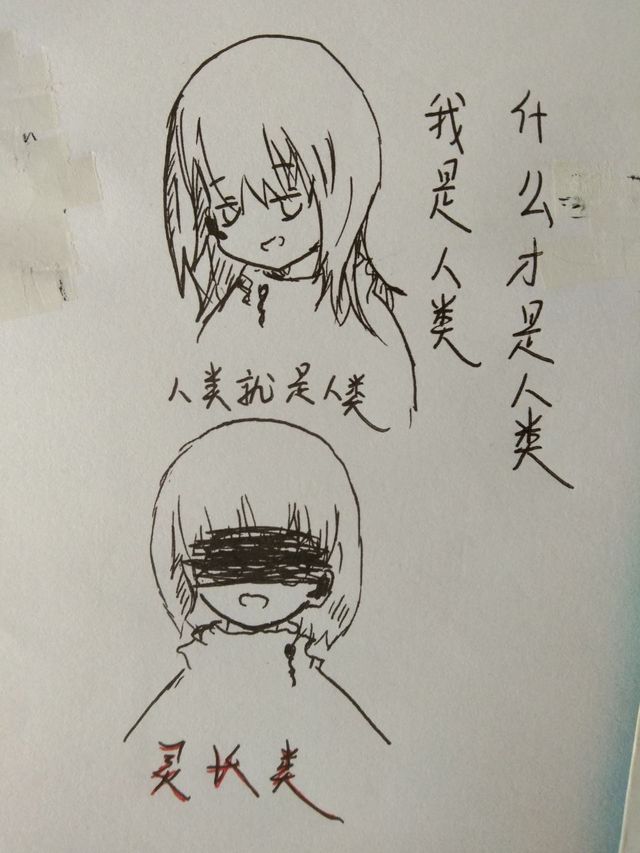 什么才是人类
我是人类
人类就是人类
灵长类